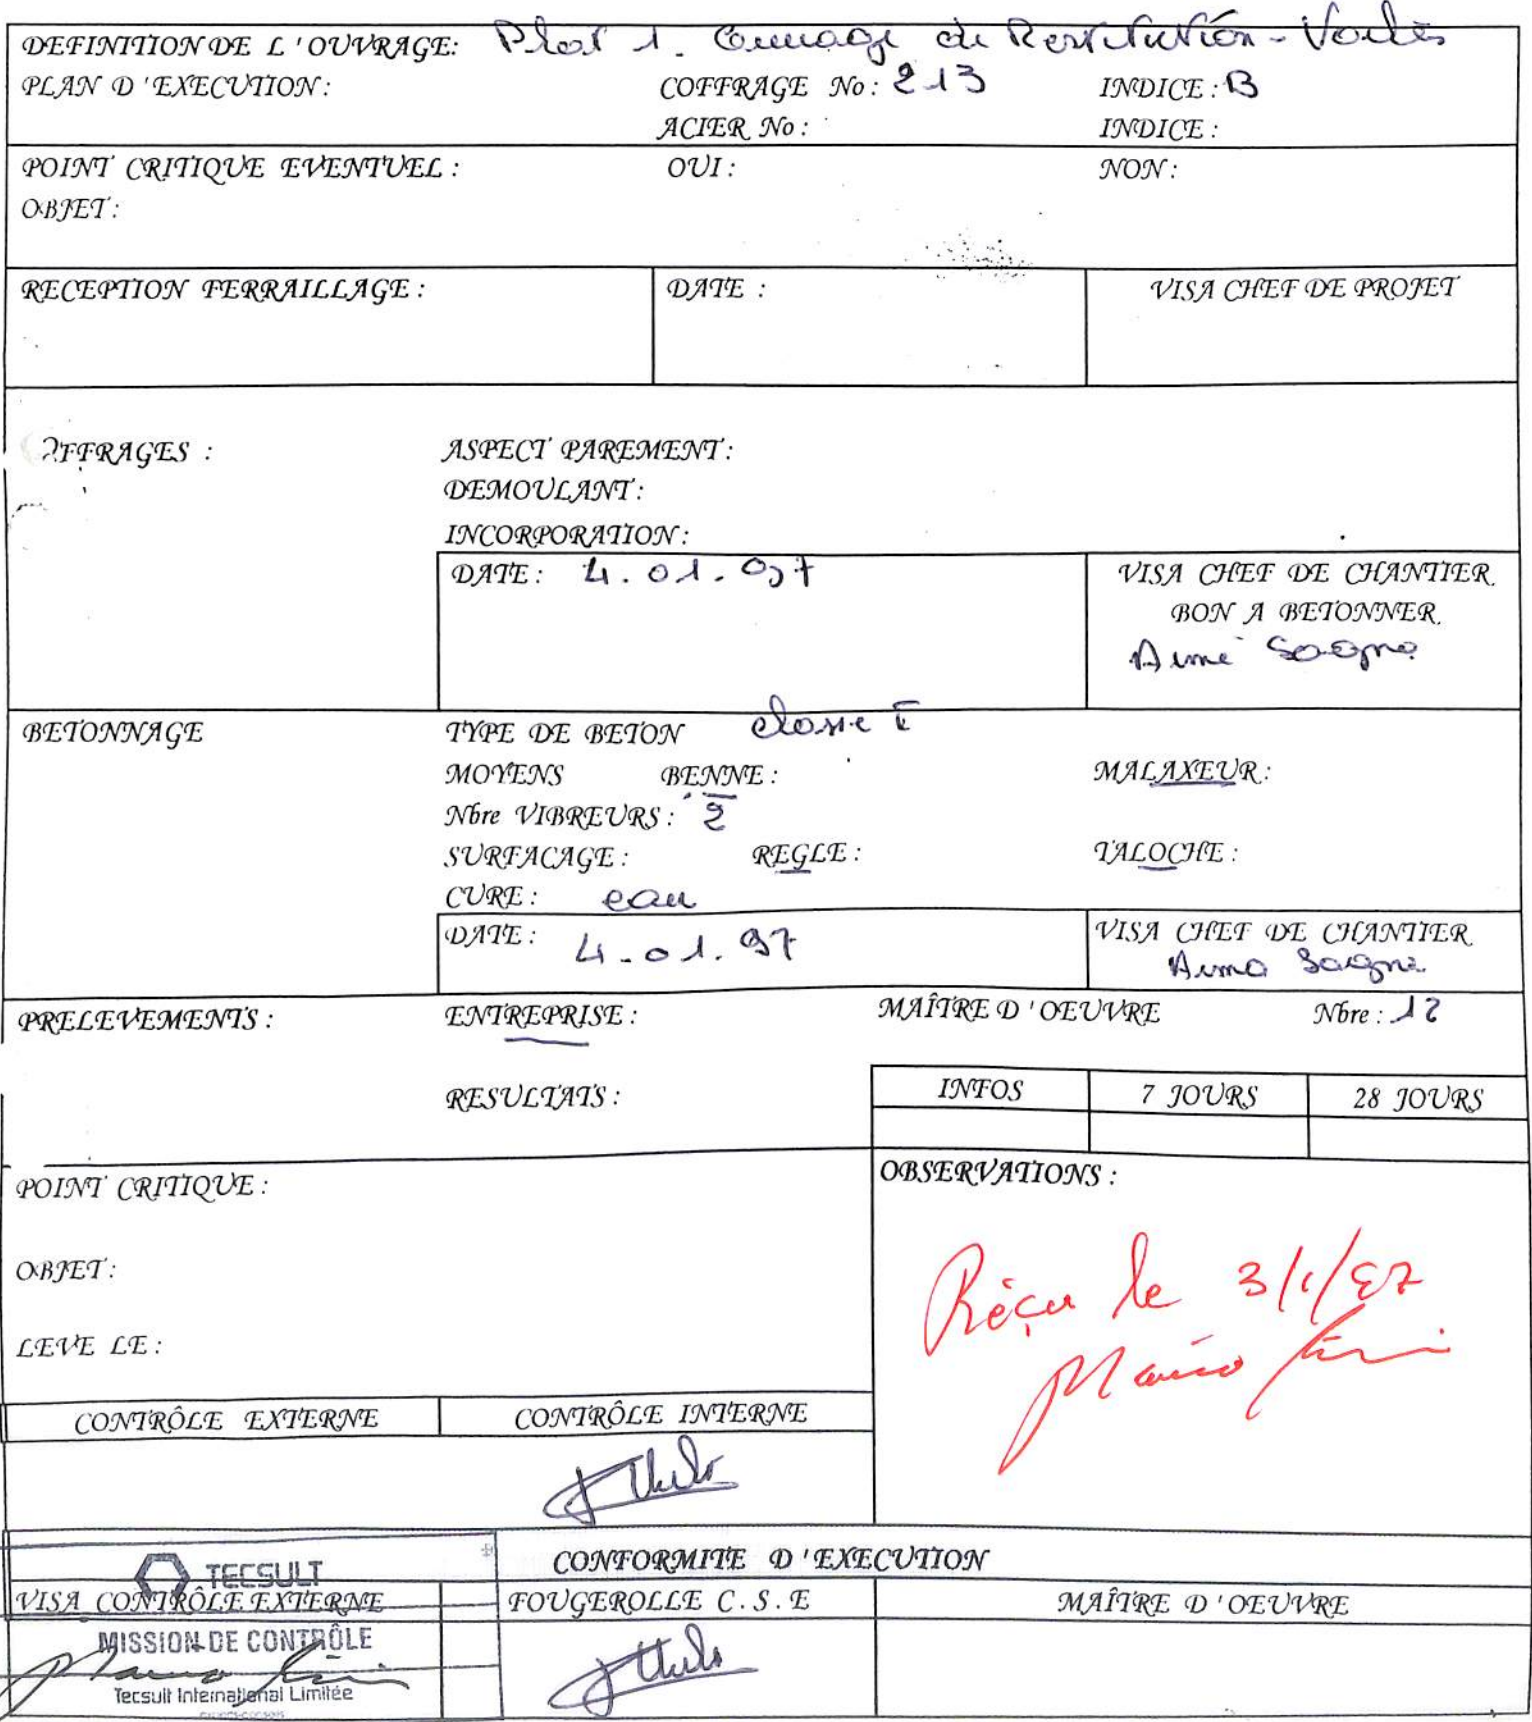 DEFINITION DE L'OUVRAGE: Plot 1. Ouvrage de Restitution - Voiles
PLAN D'EXECUTION: COFFRAGE No: 213 INDICE: B
ACIER No: INDICE:
POINT CRITIQUE EVENTUEL: OUI: NON:
OBJET:
RECEPTION FERRAILLAGE: DATE: VISA CHEF DE PROJET
OFFRAGES: ASPECT PAREMENT:
DEMOULANT:
INCORPORATION:
DATE: 4.01.97 VISA CHEF DE CHANTIER
BON A BETONNER
Aimé Sagna
BETONNAGE TYPE DE BETON classe I
MOYENS BENNE: MALAXEUR:
Nbre VIBREURS: 2
SURFACAGE: REGLE: TALOCHE:
CURE: eau
DATE: 4.01.97 VISA CHEF DE CHANTIER
Sagna
PRELEVEMENTS: ENTREPRISE: MAÎTRE D'OEUVRE Nbre: 12
RESULTATS: INFOS 7 JOURS 28 JOURS
POINT CRITIQUE: OBSERVATIONS:
OBJET:
Réçu le 3/1/97
LEVE LE:
CONTRÔLE EXTERNE CONTRÔLE INTERNE
TECSULT CONFORMITE D'EXECUTION
VISA CONTRÔLE EXTERNE FOUGEROLLE C.S.E MAÎTRE D'OEUVRE
MISSION DE CONTRÔLE
Tecsult International Limitée